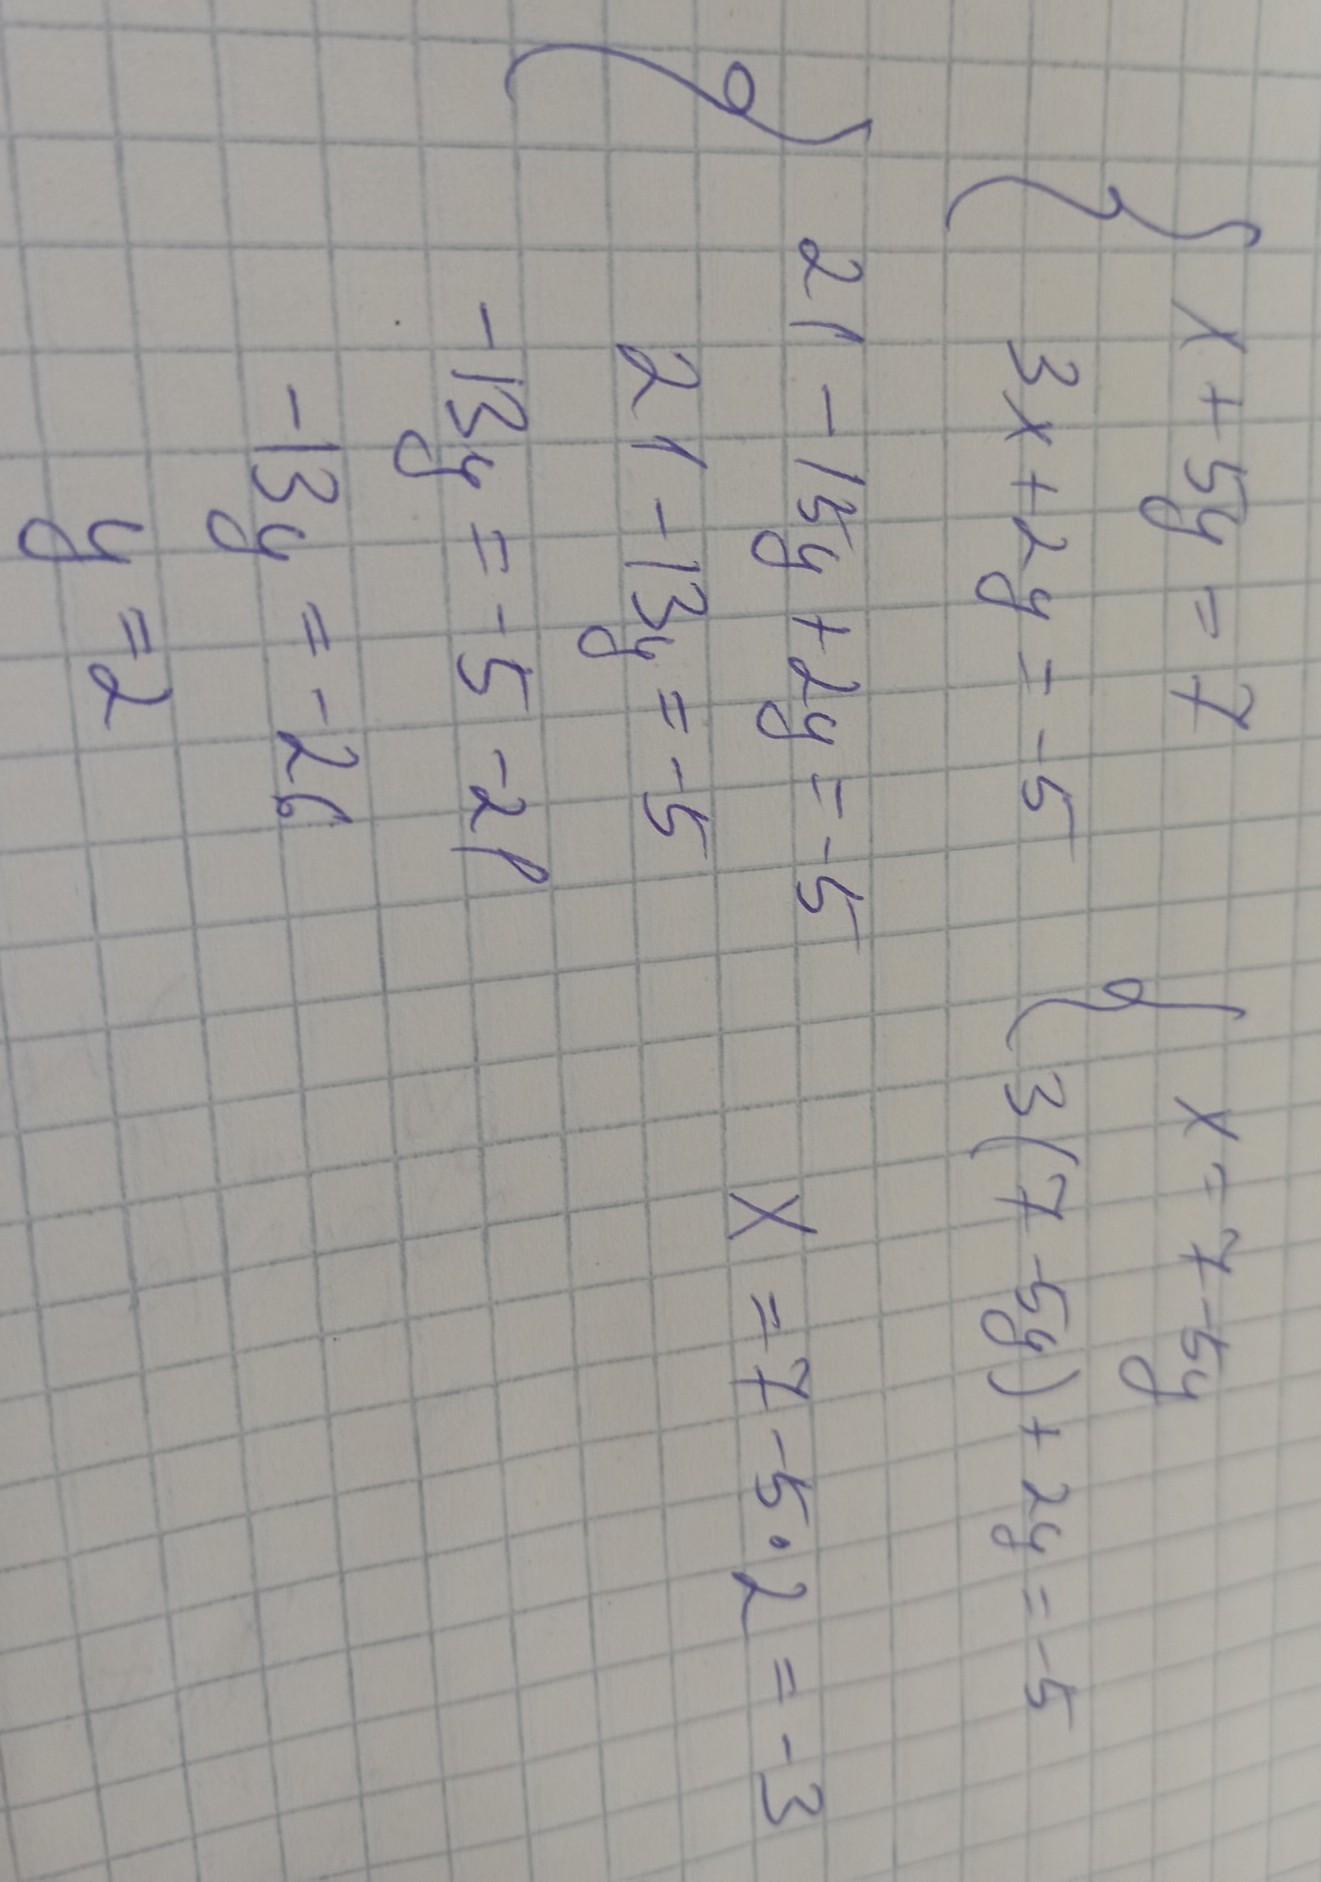 { x + 5y = 7
3x + 2y = -5
{ x = 7 - 5y
3(7 - 5y) + 2y = -5
{ 21 - 15y + 2y = -5
21 - 13y = -5
-13y = -5 - 21
-13y = -26
y = 2
x = 7 - 5 · 2 = -3